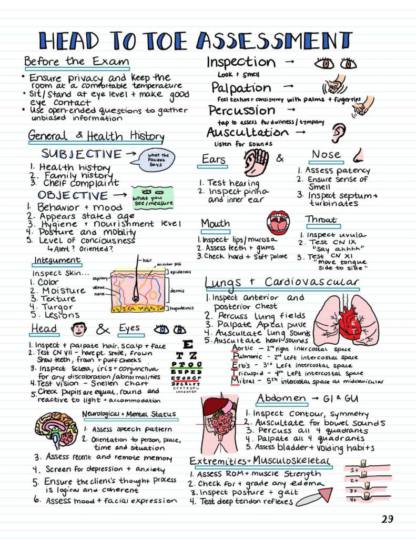 HEAD TO TOE ASSESSMENT
Before the Exam
• Ensure privacy and keep the
room at a comfortable temperature
• Sit/Stand at eye level + make good
eye contact
• Use open-ended questions to gather
unbiased information
Inspection →
Look + Smell
Palpation →
Feel texture/consistency with palms + fingertips
Percussion →
tap to assess for dullness/tympany
Auscultation →
listen for sounds
General & Health History
SUBJECTIVE →
What the Patient Says
1. Health history
2. Family history
3. Cheif complaint
OBJECTIVE →
What you see/measure
1. Behavior + mood
2. Appears stated age
3. Hygiene + nourishment level
4. Posture and moblity
5. Level of conciousness
↳ Alert? oriented?
Ears
&
Nose
1. Test hearing
2. Inspect pinna
and inner ear
1. Assess patency
2. Ensure sense of
smell
3. Inspect septum +
turbinates
Mouth
1. Inspect lips/mucosa
2. Assess teeth + gums
3. Check hard + soft palate
Throat
1. Inspect uvula
2. Test CN IX
"Say ahhh"
3. Test CN XI
"move tongue
side to side"
Integument
Inspect skin...
1. Color
2. Moisture
3. Texture
4. Turgor
5. Lesions
hair
epidermis
dermis
hypodermis
Lungs + Cardiovascular
1. Inspect anterior and
posterior chest
2. Percuss lung fields
3. Palpate Apical pulse
4. Auscultate lung sounds
5. Auscultate heart sounds
Aortic - 2nd right intercostal space
Pulmonic - 2nd left intercostal space
Erb's - 3rd left intercostal space
Tricuspid - 4th left intercostal space
Mitral - 5th intercostal space at midclavicular
Head
&
Eyes
1. Inspect + palpate hair, scalp + face
2. Test CN VII - have pt. smile, frown
show teeth, frown + puff cheeks
3. Inspect sclera, iris + conjunctiva
for any discoloration/abnormalities
4. Test vision - Snellen chart
5. Check pupils are equal, round and
reactive to light + accommodation
E
T Z
Neurological + Mental Status
1. Assess speech pattern
2. Orientation to person, space,
time and situation
3. Assess recent and remote memory
4. Screen for depression + anxiety
5. Ensure the client's thought process
is logical and coherent
6. Assess mood + facial expression
Abdomen → GI & GU
1. Inspect contour, symmetry
2. Auscultate for bowel sounds
3. Percuss all 4 quadrants
4. Palpate all 4 quadrants
5. Assess bladder + voiding habits
Extremities + Musculoskeletal
1. Assess ROM + muscle strength
2. Check for + grade any edema
3. Inspect posture + gait
4. Test deep tendon reflexes
1+
2+
3+
4+
29